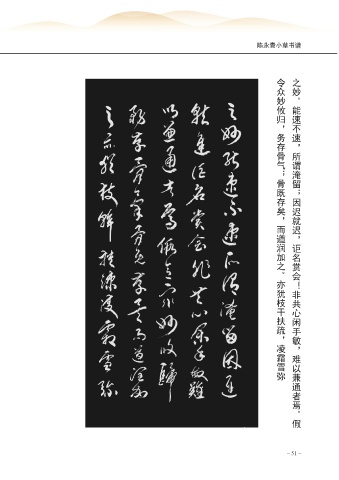 陈永贵小草书谱
之妙，能速不速，所谓淹留；因迟就迟，讵名赏会！非其心闲手敏，难以兼通者焉。假
令众妙攸归，务存骨气；骨既存矣，而遒润加之。亦犹枝干扶疏，凌霜雪弥
之妙能速不速所謂淹留因遲
就遲詎名賞會非其心閑手敏難
以兼通者焉假令衆妙攸歸
務存骨氣骨既存矣而遒潤加
之亦猶枝幹扶疏凌霜雪弥
– 51 –